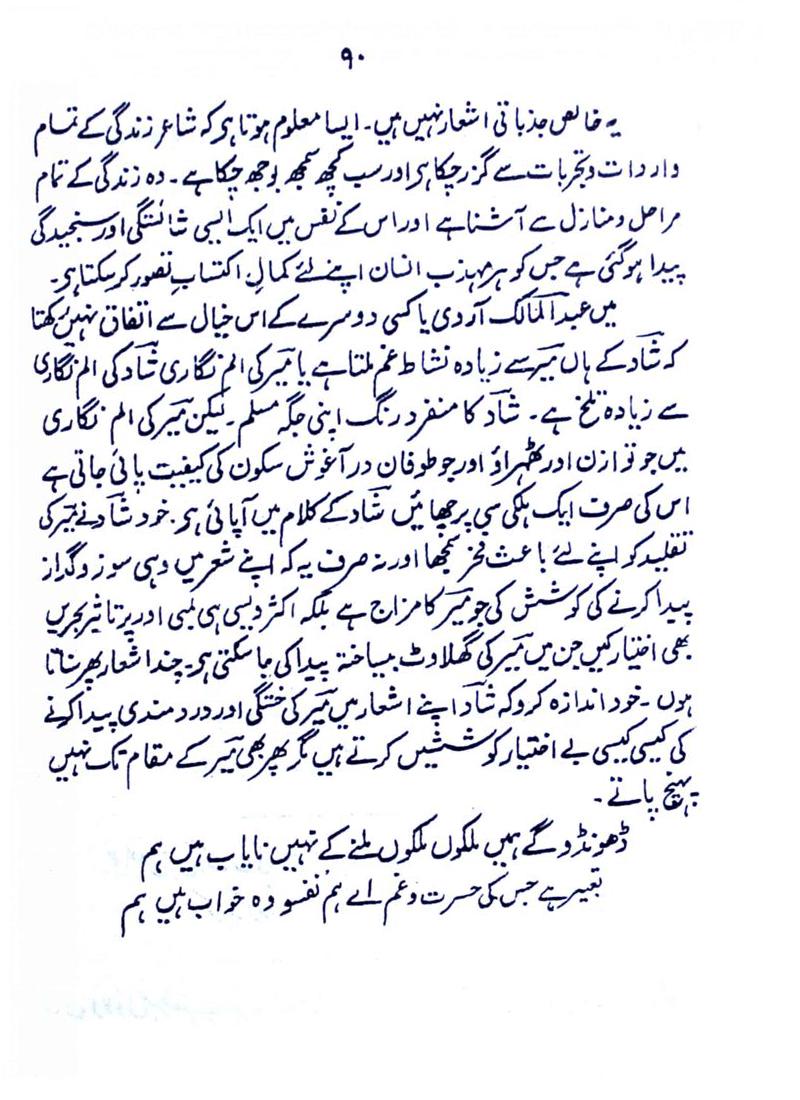 ۹۰
یہ خالص جذباتی اشعار نہیں ہیں۔ ایسا معلوم ہوتا ہے کہ شاعر زندگی کے تمام
واردات و تجربات سے گزر چکا ہے اور سب کچھ سمجھ بوجھ چکا ہے۔ وہ زندگی کے تمام
مراحل و منازل سے آشنا ہے اور اس کے نفس میں ایک ایسی شائستگی اور سنجیدگی
پیدا ہوگئی ہے جس کو ہر مہذب انسان اپنے لئے کمالِ اکتساب تصور کر سکتا ہے۔
میں عبدالمالک آروی یا کسی دوسرے کے اس خیال سے اتفاق نہیں رکھتا
کہ شاد کے ہاں میر سے زیادہ نشاطِ غم ملتا ہے یا میر کی الم نگاری شاد کی الم نگاری
سے زیادہ تلخ ہے۔ شاد کا منفرد رنگ اپنی جگہ مسلم۔ لیکن میر کی الم نگاری
میں جو توازن اور ٹھہراؤ اور جو طوفان در آغوش سکون کی کیفیت پائی جاتی ہے
اس کی صرف ایک ہلکی سی پرچھائیں شاد کے کلام میں آپائی ہے۔ خود شاد نے میر کی
تقلید کو اپنے لئے باعث فخر سمجھا اور نہ صرف یہ کہ اپنے شعر میں وہی سوز و گداز
پیدا کرنے کی کوشش کی جو میر کا مزاج ہے بلکہ اکثر ویسی ہی لمبی اور پرتاثیر بحریں
بھی اختیار کیں جن میں میر کی گھلاوٹ بیساختہ پیدا کی جا سکتی ہے۔ چند اشعار پھر سناتا
ہوں۔ خود اندازہ کرو کہ شاد اپنے اشعار میں میر کی خستگی اور درد مندی پیدا کرنے
کی کیسی کیسی بے اختیار کوششیں کرتے ہیں مگر پھر بھی میر کے مقام تک نہیں
پہنچ پاتے۔
ڈھونڈو گے ہمیں ملکوں ملکوں ملنے کے نہیں نایاب ہیں ہم
تعبیر ہے جس کی حسرت و غم اے ہم نفسو وہ خواب ہیں ہم